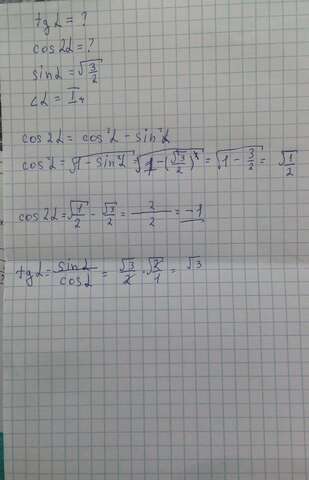 tg α = ?
cos 2α = ?
sin α = √3/2
∠α = I ч
cos 2α = cos²α - sin²α
cos²α = √1 - sin²α = √1 - (√3/2)² = √1 - 3/2 = √1/2
cos 2α = √1/2 - √3/2 = 2/2 = -1
tg α = sin α/cos α = √3/2 · √2/1 = √3